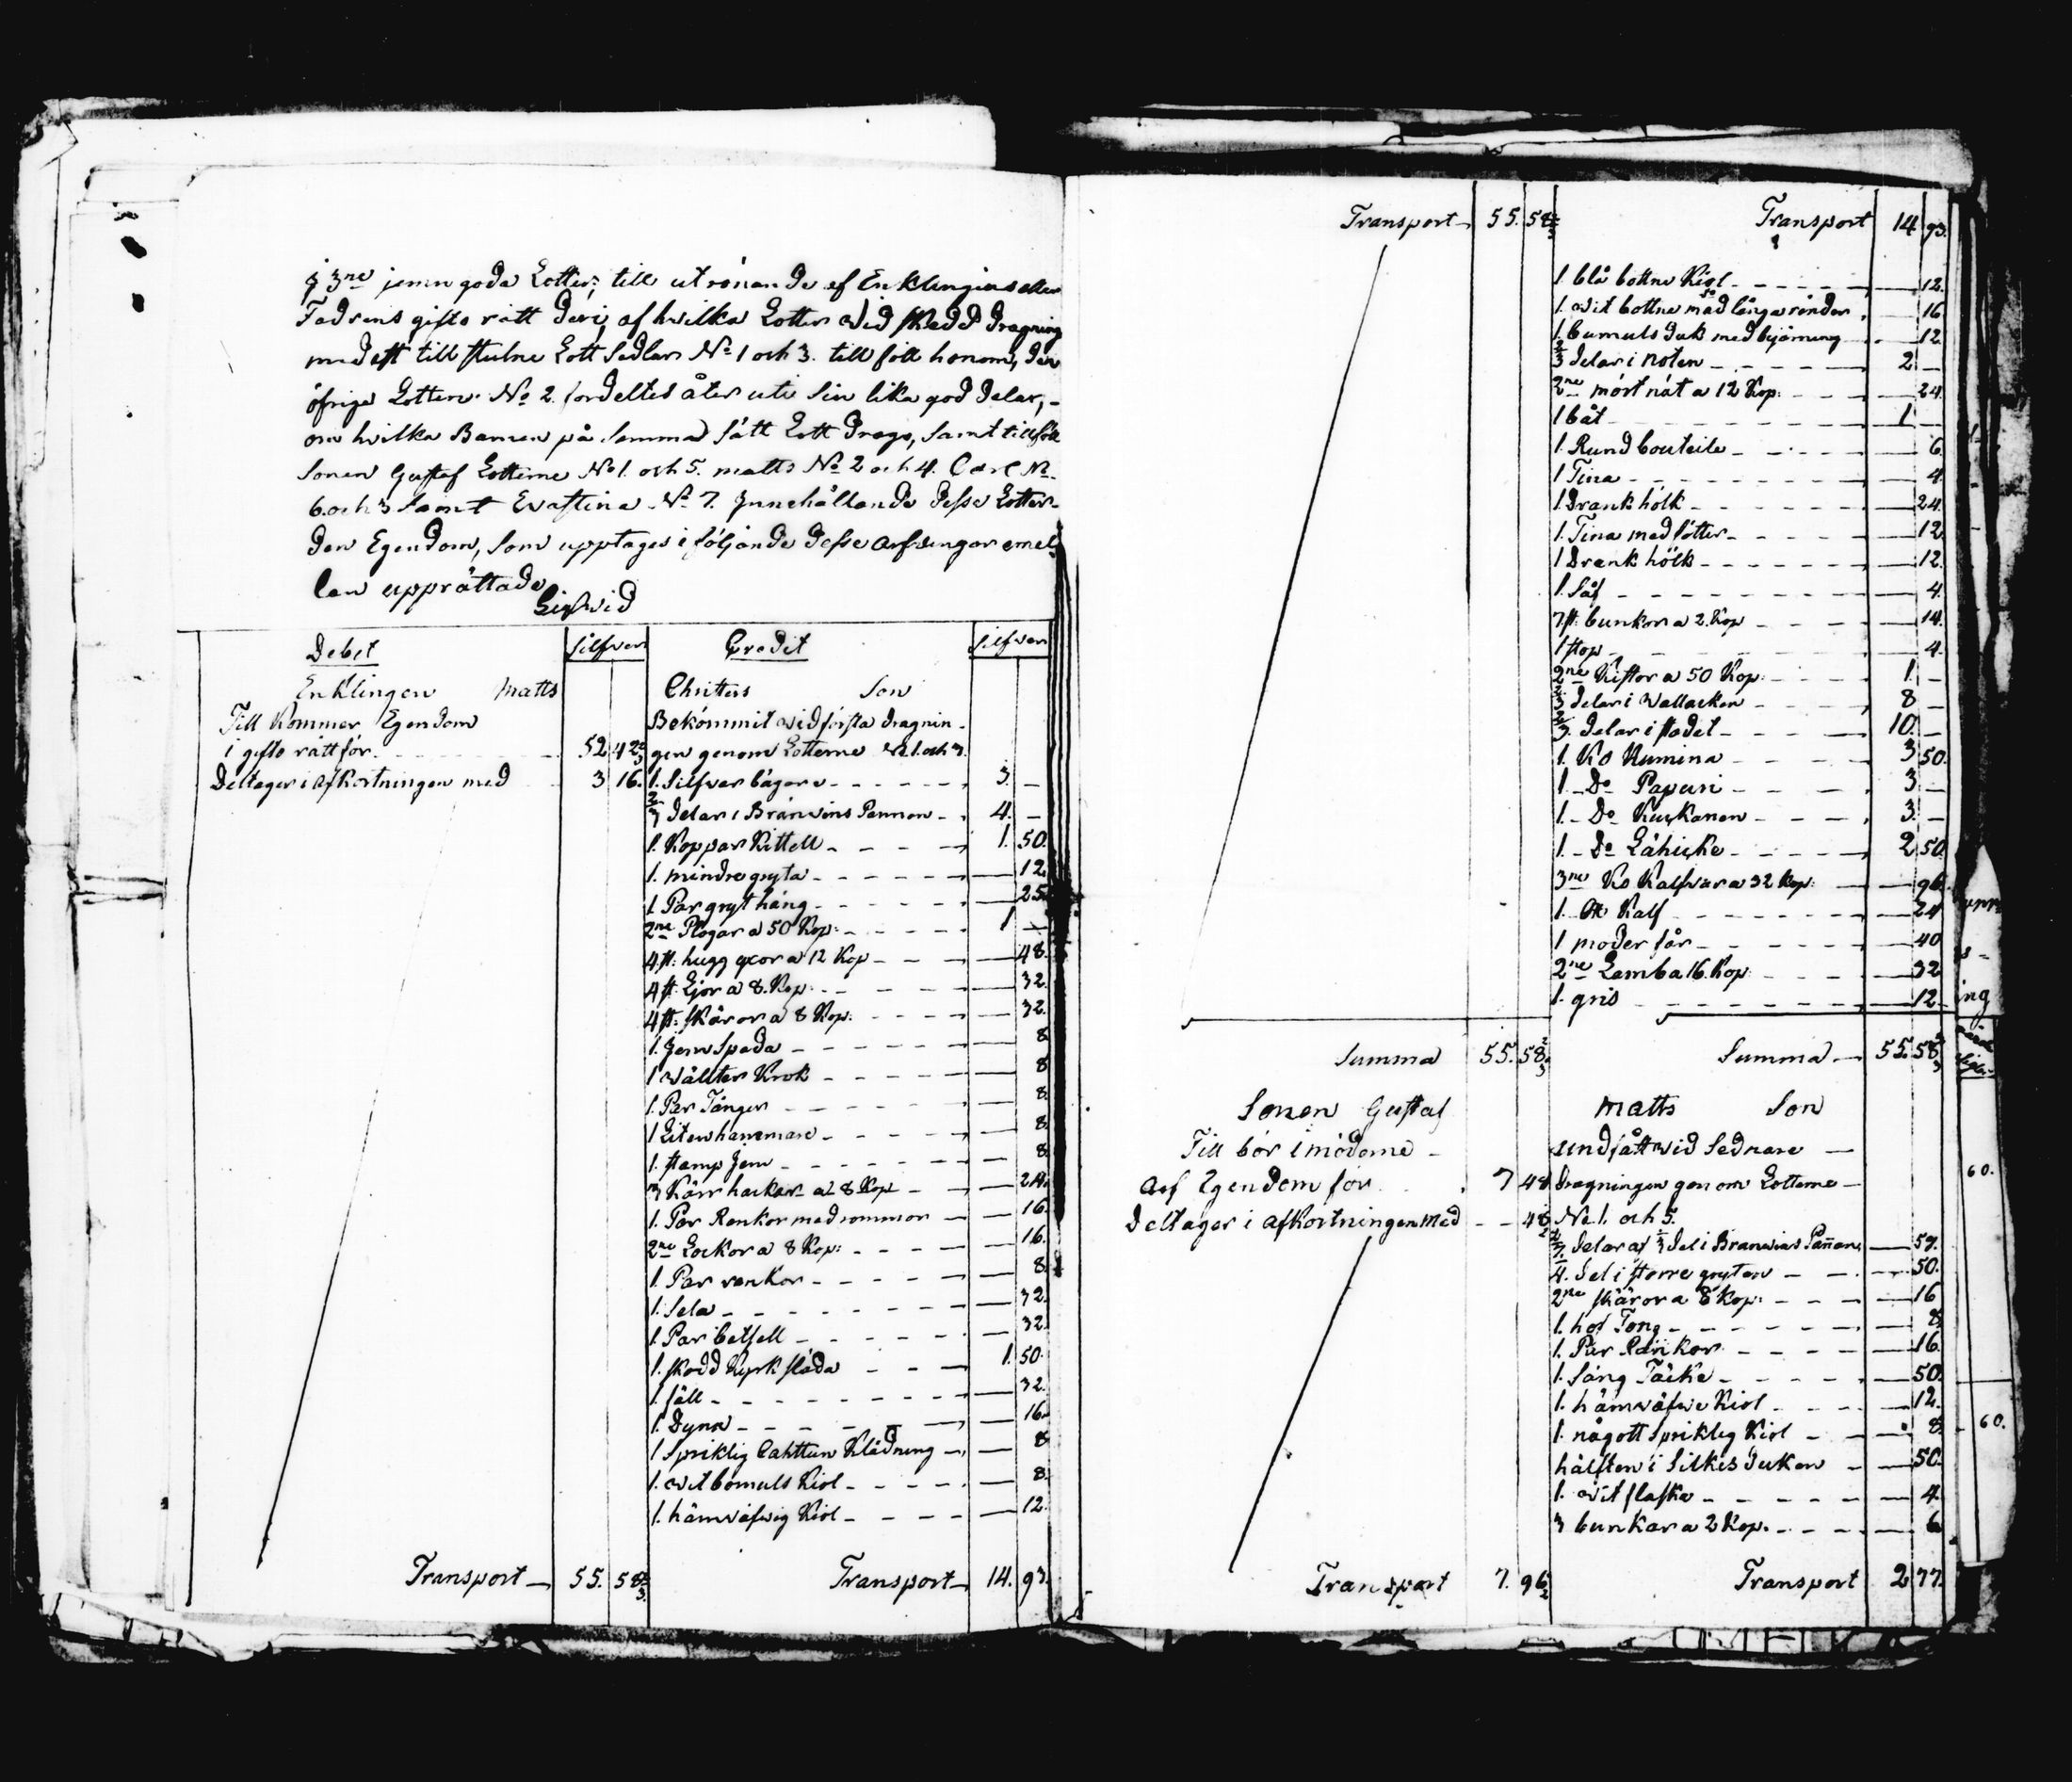 i 3ne jemn goda Lotter, till utrönande af Enklingens eller
Fadrens gifto rätt deri, af hvilka Lotter wid skedd dragning
medest tillslutne Lott Sedlar No 1 och 3. till föll honom, den
öfriga Lotten No 2. fördeltes åter uti siu lika god delar,
om hvilka Barnen på samma sätt Lott drogo, samt tillföll
Sonen Gustaf Lotterne No 1. och 5. Matts No 2 och 4. Carl No
6. och 3 samt Evastina No 7. Innehållande desse Lotter
den Egendom, som upptages i följande desse arfvingar emel-
lan upprättade
Liqwid
Debet Silfver Credit Silfver
Enklingen Matts Christers Son
Till kommer Egendom Bekommit wid första dragnin-
i gifto rätt för 52 42 2/3 gen genom Lotterne No 1. och 3.
Deltager i afkortningen med 3 16. 1. Silfver bägare 3. —
2/3 delar i Bränvins Pannan 4. —
1. Koppar Kittell 1. 50.
1. mindre gryta — 12.
1 Par gryt häng — 25.
2ne Plogar a 50 Kop: 1 —
4 st: hugg yxor a 12 Kop — 48.
4 st. Ljor a 8. Kop: — 32.
4 st: skäror a 8 Kop: — 32.
1. Jern Spada — 8
1 wällter Krok — 8
1. Par Tänger — 8.
1 Liten hammare — 8.
1. stamp Jern — 8.
3 Kärr hackor a 8 Kop — 24.
1. Par Rankor med rommor — 16.
2ne Lockor a 8 Kop: — 16.
1. Par rankor — 8.
1. Sela — 32.
1. Par betsell — 32.
1. skodd Kyrk släda 1. 50.
1. fäll — 32.
1. Dyna — 16.
1 Spriklig Cahttun Klädning — 8
1. wit bomuls Kiol — 8.
1. hämväfvig Kiol — 12.
Transport 55. 58 2/3. Transport 14. 93.
Transport 55. 58 2/3 Transport 14 93.
1. blå bottne Kiol — 12.
1. wit bottne med långa ränder — 16
1. bumuls duk med — 12
2/3 delar i Noten 2. —
2ne mört nät a 12 Kop: — 24.
1 båt 1 —
1. Rund bouteile — 6.
1 Tina — 4.
1 Drank hölk — 24.
1. Tina med fötter — 12.
1 Drank hölk — 12.
1. Såf — 4.
7 st. bunkor a 2. Kop — 14.
1 stop — 4.
2ne Kistor a 50 Kop: 1. —
2/3 delar i Wallacken 8 —
2/3. delar i stodet 10. —
1. Ko Kumina 3 50.
1. Do Papuri 3 —
1. Do Kuckanen 3. —
1. Do Lähicke 2 50.
3ne Ko Kalfvar a 32 Kop: — 96.
1. Kalf — 24
1 moder får — 40
2ne Lamb a 16. Kop: — 32
1. gris — 12
Summa 55. 58 2/3 Summa 55. 58 2/3
Sonen Gustaf Matts Son
Till bör i möderne undfått wid sednare
arf Egendom för 7 48 Dragningen genom Lotterne
Deltager i afkortningen med — 48 1/2 No 1. och 5.
2/7. delar af 1/3 del i Branwins Pannan — 57.
4. del i större grytan — 50.
2ne skäror a 8 Kop: — 16
1. hof Tong — 8
1. Par Rankor — 16.
1. Säng Täcke — 50.
1. hämväfve Kiol — 12.
1. någott Spriklig Kiol — 8.
hälften i Silkes duken — 50.
1. Wit flaska — 4.
3 bunkar a 2 Kop. — 6
Transport 7. 96 1/2 Transport 2 77.
ing
60.
60.